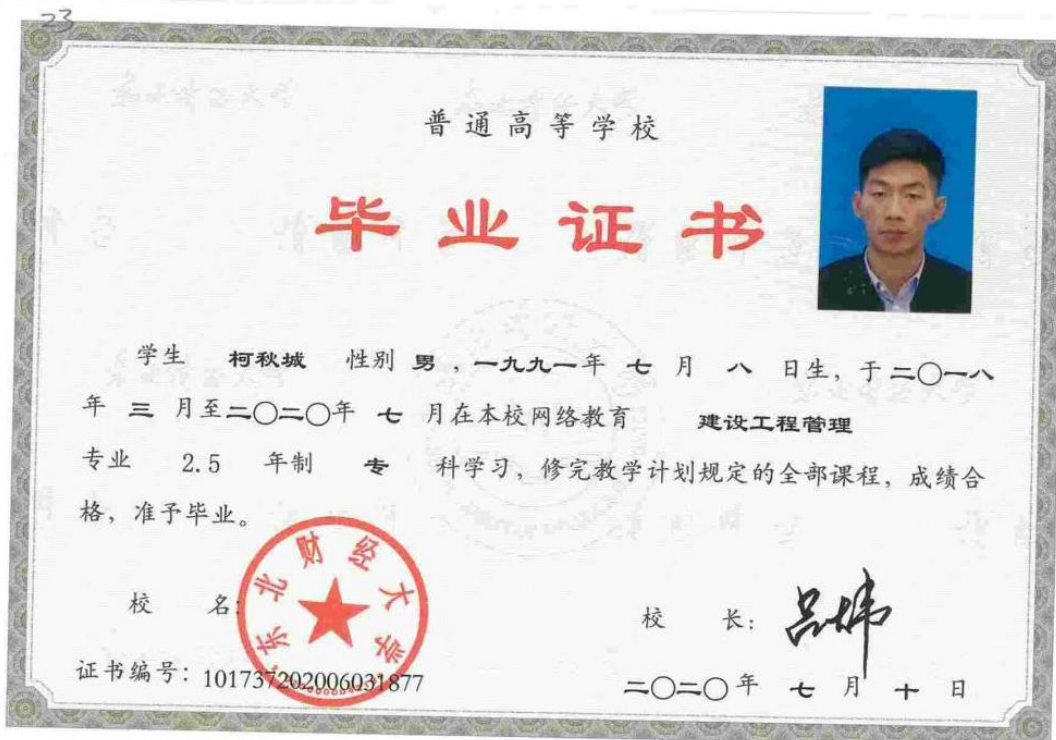 23
普通高等学校
毕业证书
学生 柯秋城 性别 男，一九九一年 七 月 八 日生，于二〇一八
年 三 月至二〇二〇年 七 月在本校网络教育 建设工程管理
专业 2.5 年制 专 科学习，修完教学计划规定的全部课程，成绩合
格，准予毕业。
校 名：
东北财经大学
校 长：吕炜
证书编号：101737202006031877
二〇二〇年 七 月 十 日